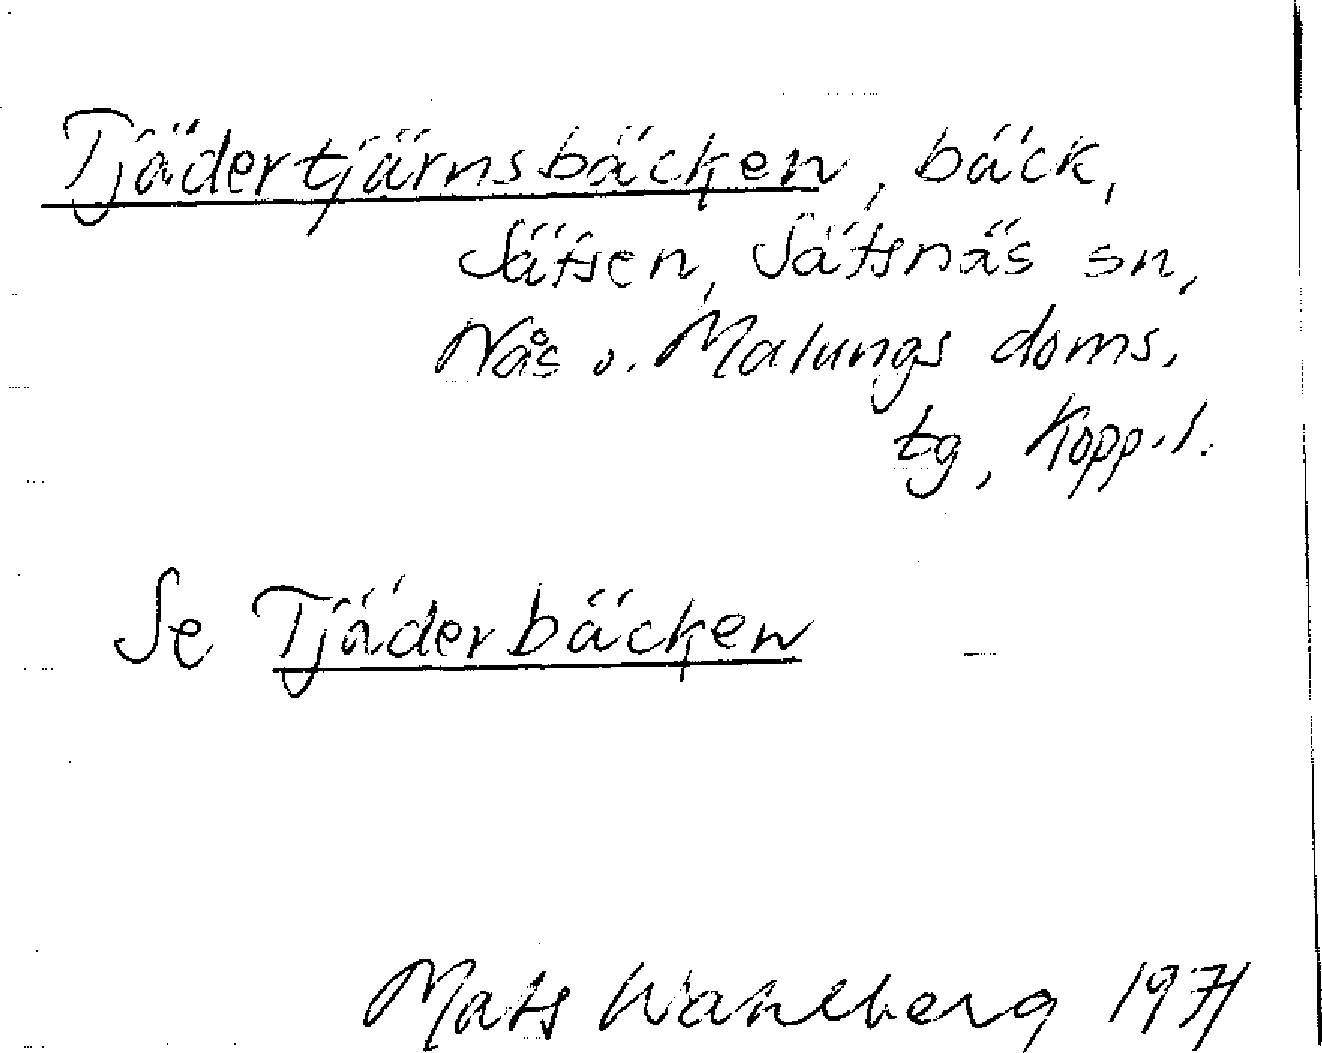 Tjädertjärnsbäcken, bäck,
Sätsen, Sätsnäs sn,
Nås o. Malungs doms.
tg, Kopp.l.
Se Tjäderbäcken
Mats Wahlberg 1971